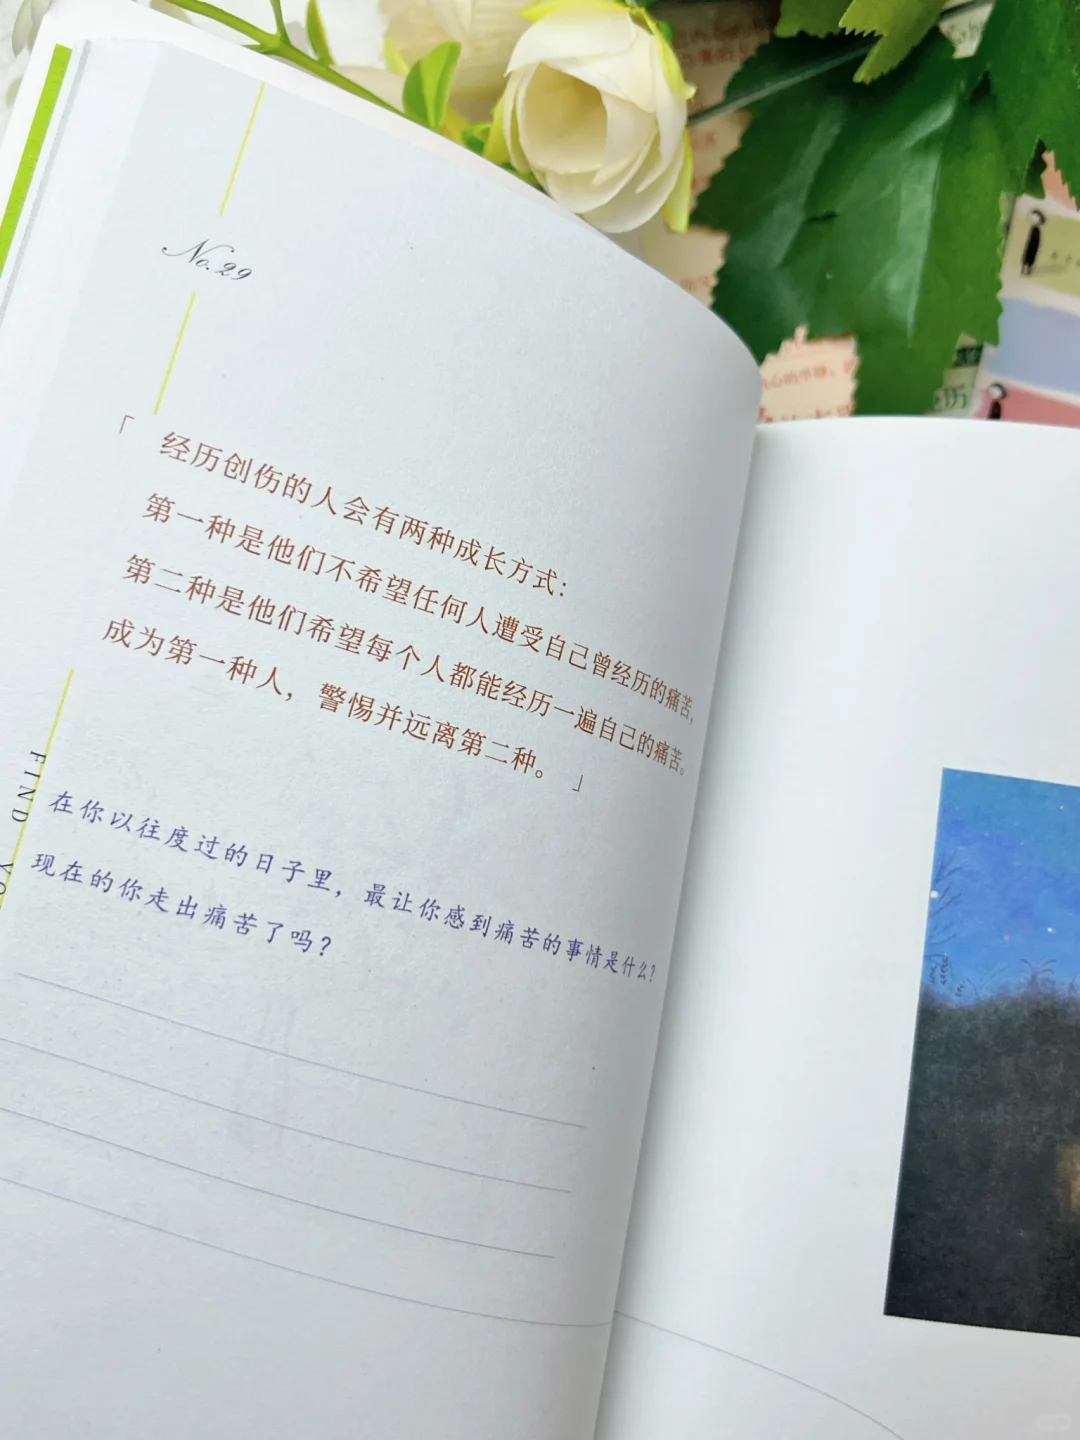 No.29
「 经历创伤的人会有两种成长方式：
第一种是他们不希望任何人遭受自己曾经历的痛苦，
第二种是他们希望每个人都能经历一遍自己的痛苦。
成为第一种人，警惕并远离第二种。 」
FIND
在你以往度过的日子里，最让你感到痛苦的事情是什么？
现在的你走出痛苦了吗？